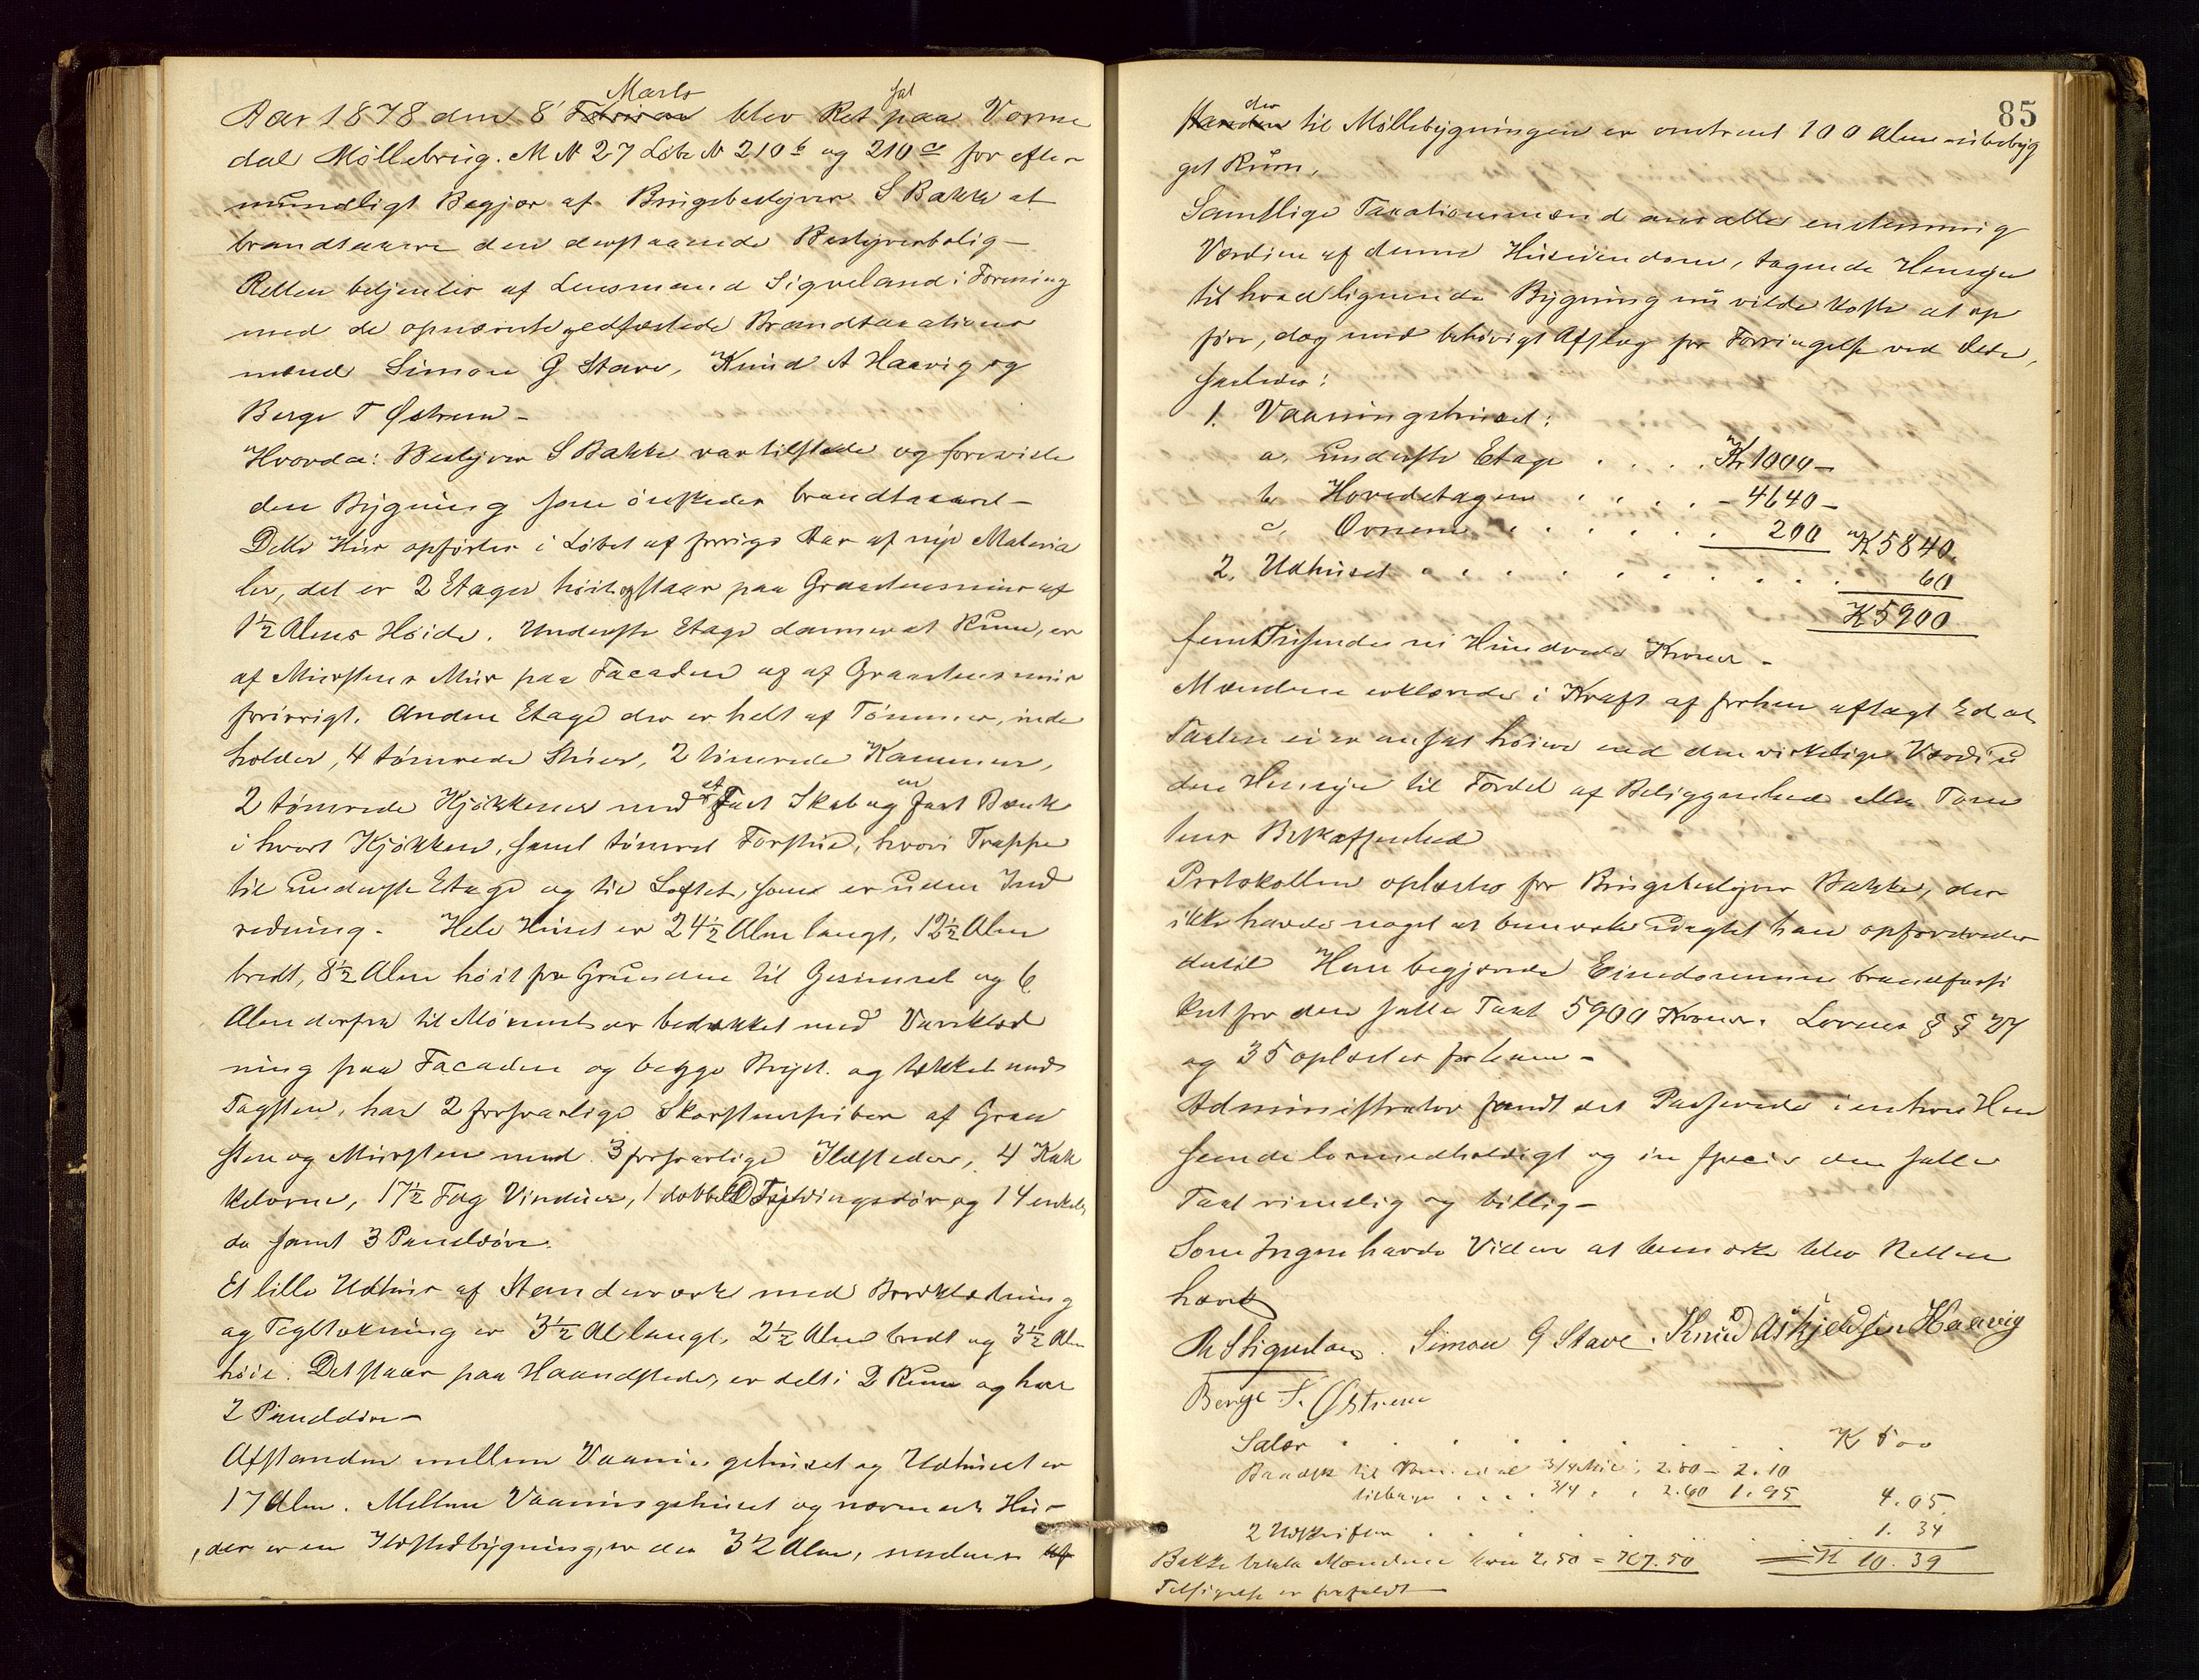 Aar 1878 den 8' Februar Marts blev Ret sat paa Vorme
dal Møllebrug. M N 27 Løbe N 210 b og 210 c for efter
mundligt Begjær af Brugsbestyrer S Bakke at
brandtaxere den derstaaende Bestyrerbolig –
Retten betjentes af Lensmand Sigveland i Forening
med de opnævnte edfæstede Brandtaxations
mænd Simon G Stave, Knud A Haavig og
Berge T Østrem –
Hvorda: Bestyrer S Bakke var tilstede og foreviste
den Bygning som ønskedes brandtaxeret –
Dette Hus opførtes i Løbet af forrige Aar af nye Materia
ler, det er 2 Etager høit og staar paa Graastensmur af
1½ Alens Høide. Underste Etage danner et Rum, er
af Murstens Mur paa Facaden og af Graastensmur
forøvrigt. Anden Etage der er helt af Tømmer, inde
holder, 4 tømrede Stuer, 2 tømrede Kammer,
2 tømrede Kjøkkener med et fast Skab og en fast Bænk
i hvert Kjøkken, samt tømret Forstue, hvori Trappe
til underste Etage og til Loftet, som er uden Ind
redning. Hele Huset er 24½ Alen langt, 12½ Alen
bredt, 8½ Alen høit fra Grunden til Gesimset og 6
Alen derfra til Mønnet er bedækket med Bordklæd
ning paa Facaden og begge Bryst. og tækket med
Tagsten, har 2 forsvarlige Skorstenspiber af Graa
sten og Mursten med 3 forsvarlige Ildsteder, 4 Kak
kelovne, 17½ Fag Vinduer, 1 dobbelt Fyldingsdør og 14 enkelte
do samt 3 Paneldøre.
Et lille Udhus af Stenderværk med Bordklædning
og Tegltækning er 3½ Al langt, 2½ Alen bredt og 3½ Alen
høit. Det staar paa Haandsteder, er delt i 2 Rum og har
2 Paneldøre –
Afstanden mellem Vaaningshuset og Udhuset er
17 Alen. Mellem Vaaningshuset og nærmeste Hus
, der er en Ildstedbygning, er der 32 Alen, medens Af
85
standen der til Møllebygningen er omtrent 100 Alen ubebyg
get Rum.
Samtlige Taxationsmænd ansatte enstemmig
Værdien af denne Huseiendom, tagende Hensyn
til hvad lignende Bygning nu vilde koste at op
føre, dog med behørigt Afslag for Forringelse ved Ælde,
saaledes:
1. Vaaningshuset:
a. underste Etage . . . . Kr 1000 –
b Hovedetagen . . . . . – 4640 –
c. Ovnene . . . . . . 200 K 5840.
2. Udhuset . . . . . . . . . . . . 60
K 5900
fem Tusende ni Hundrede Kroner –
Mændene erklærede i Kraft af forhen aflagt Ed at
Taxten ei er ansat høiere end den virkelige Værdi u
den Hensyn til Fordel af Beliggenhed eller Tom
tens Beskaffenhed
Protokollen oplæstes for Brugsbestyrer Bakke, der
ikke havde noget at bemærke uagtet han opfordredes
dertil Han begjærede Eiendommen brandforsi
kret for den satte Taxt 5900 Kroner. Lovens § § 27
og 35 oplæstes for ham –
Administrator fandt det Passerede i enhver Hen
seende lovmedholdigt og in specie den satte
Taxt rimelig og billig –
Som Ingen havde Videre at bemærke blev Retten
hævet
Simon G Stave. Knud Askjeldsen Haavig
Berge T. Østrem
Salær . . . . . . . . . K 5 00
til 3/4 Mil, 2.80 – 2.10
tilbage . . . . 3/4 . . 2.60 1.95 4.05
2 Udskrifter . . . . . 1. 34
Bakke betalte Mændene hver 2.50 = K 7.50 K 10.39
Tilsigelse er frafaldt –